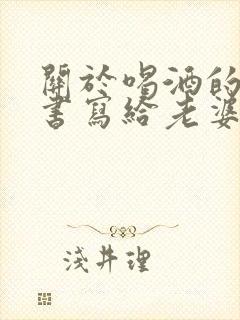 關於喝酒的
書寫給老婆
淺井理